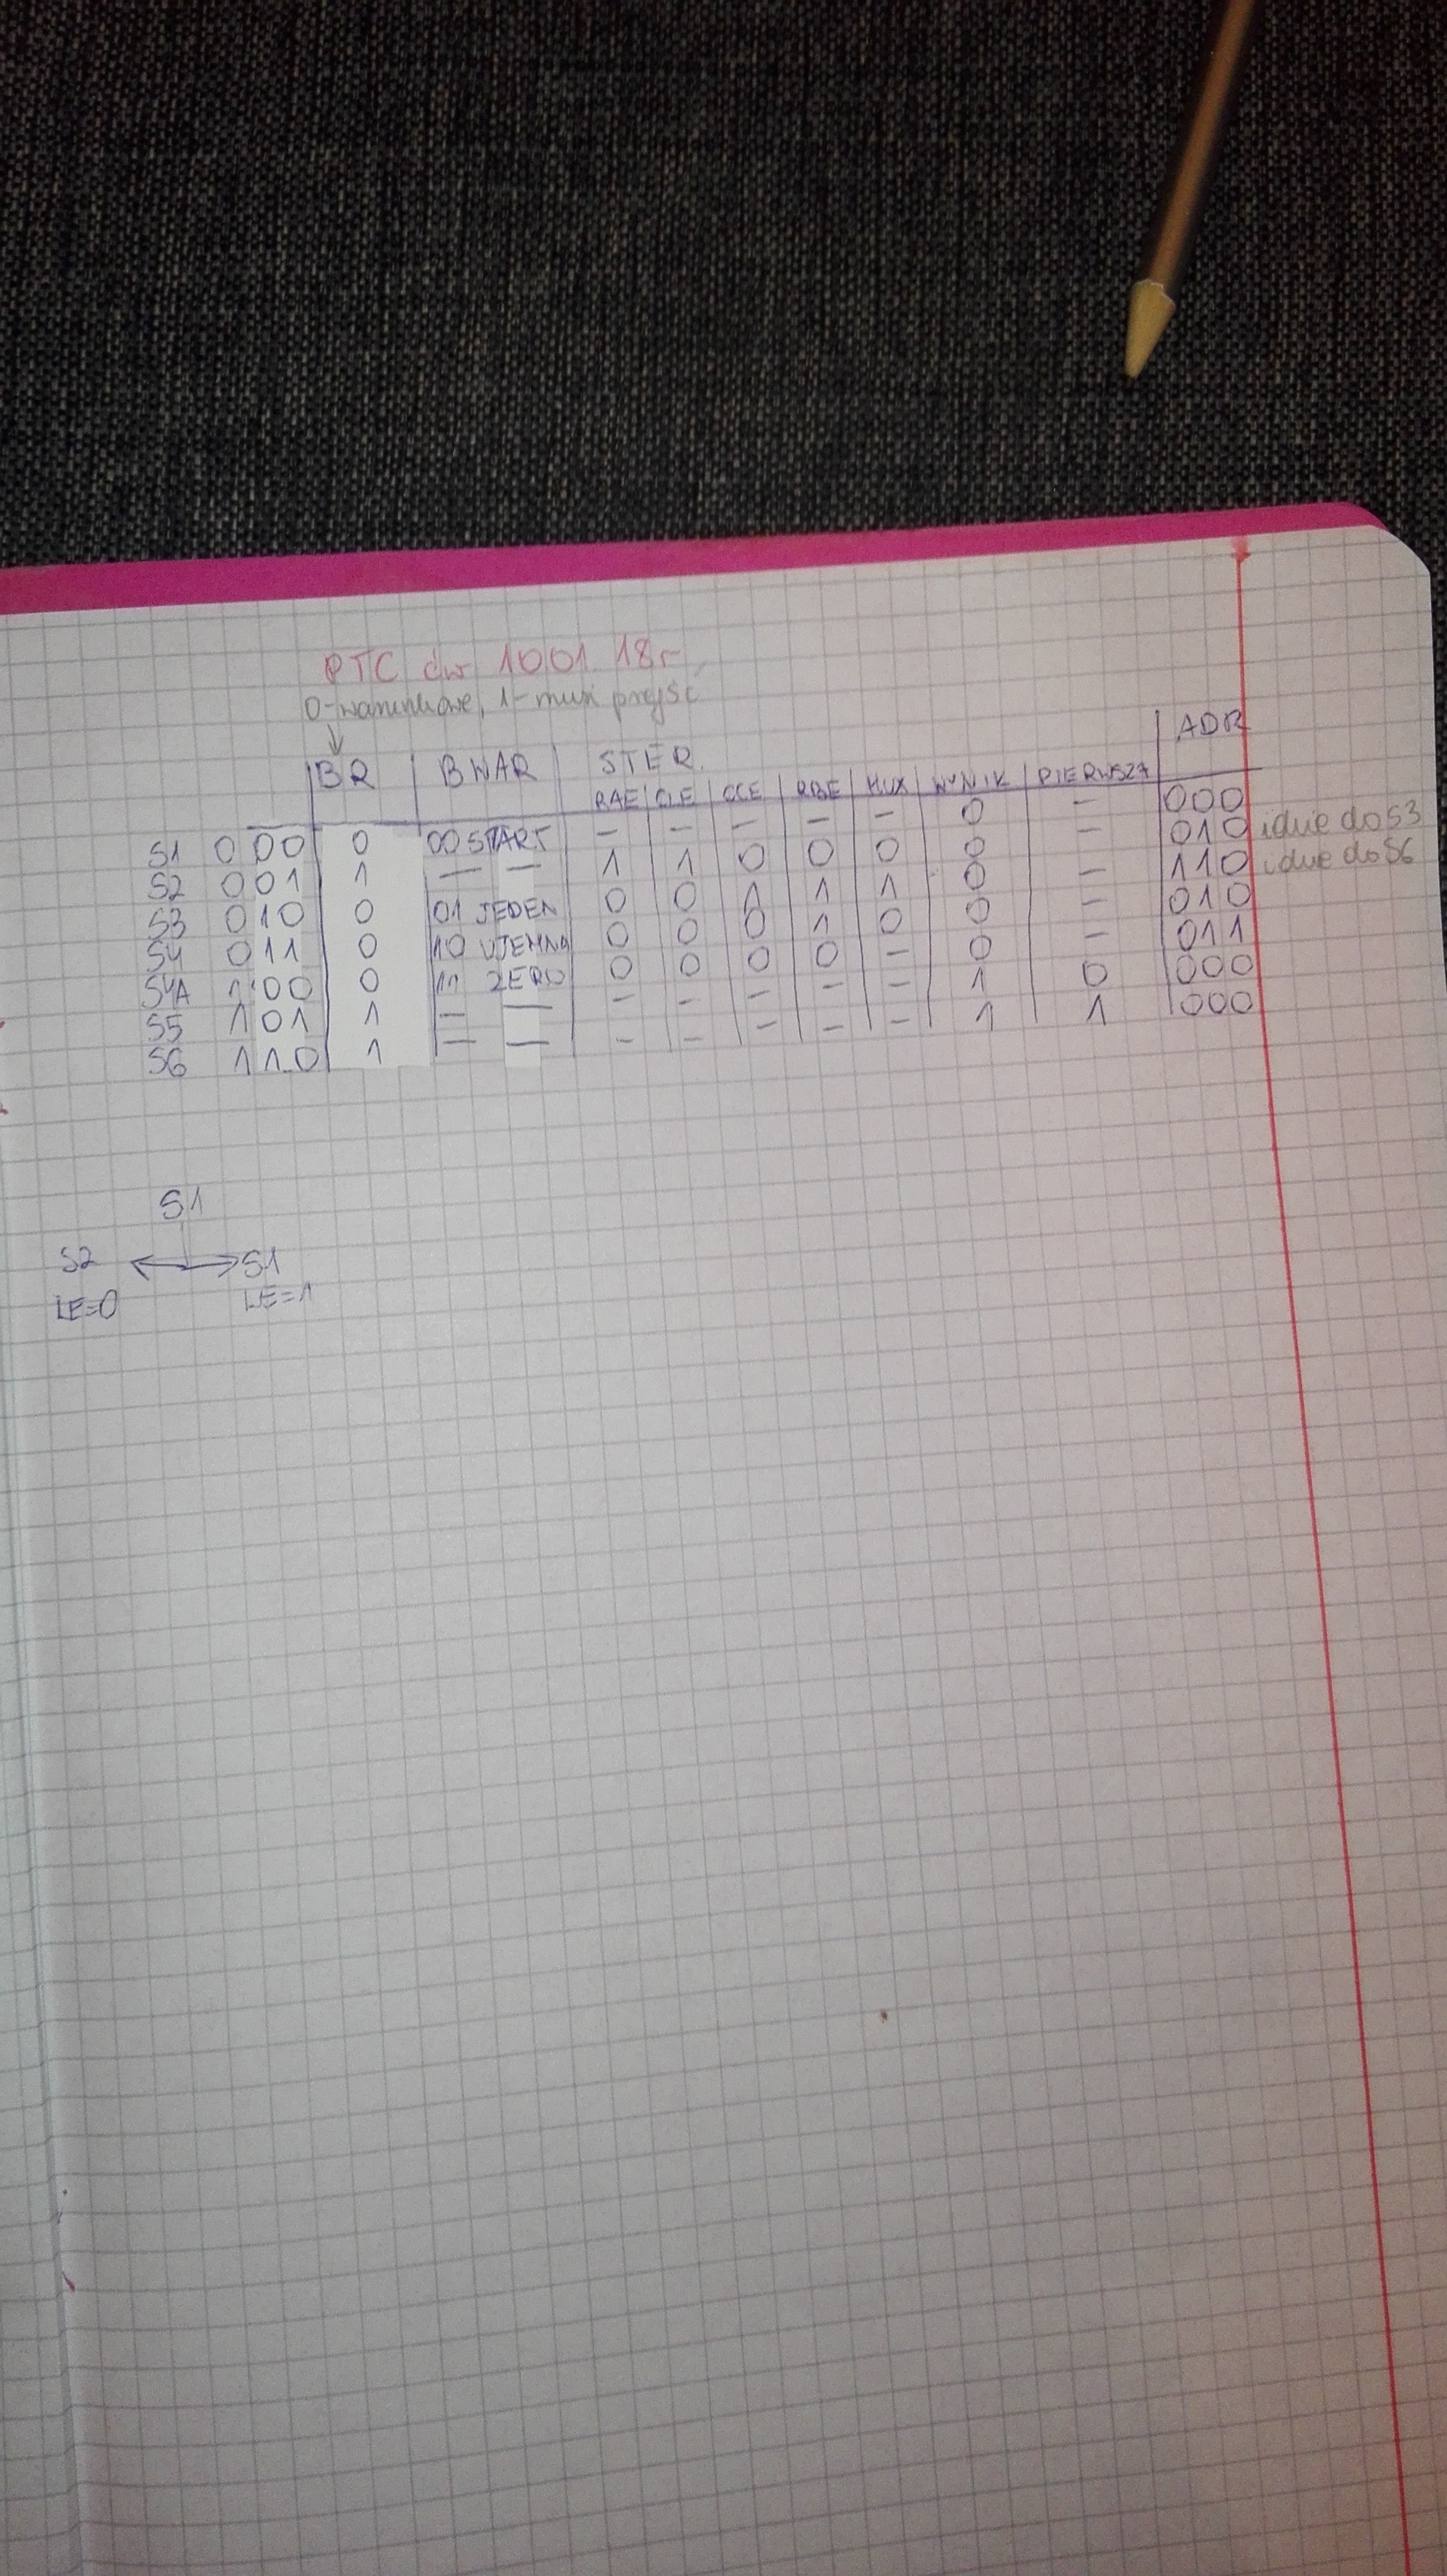 PTC ćw 10.01.18r.
0-warunkowe, 1-musi przejść
BR BWAR STER. ADR
RAE CLE CCE RBE MUX WYNIK PIERWSZA
S1 000 0 00 START - - - - - 0 - 000
S2 001 1 — — 1 1 0 0 0 0 - 010 idzie do S3
S3 010 0 01 JEDEN 0 0 1 1 1 0 - 110 idzie do S6
S4 011 0 10 UJEMNA 0 0 0 1 0 0 - 010
S4A 100 0 11 ZERO 0 0 0 0 - 0 - 011
S5 101 1 — — - - - - - 1 0 000
S6 110 1 — — - - - - - 1 1 000
S1
S2 S1
LE=0 LE=1